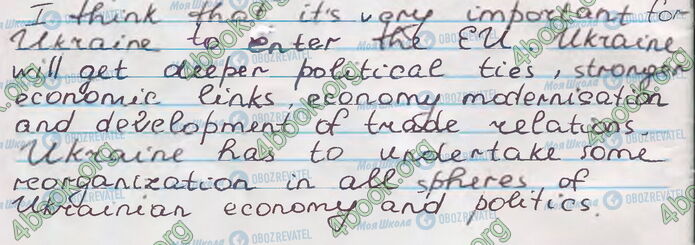 I think that it's very important for
Ukraine to enter the EU. Ukraine
will get deeper political ties, stronger
economic links, economy modernisation
and development of trade relations.
Ukraine has to undertake some
reorganization in all spheres of
Ukrainian economy and politics.